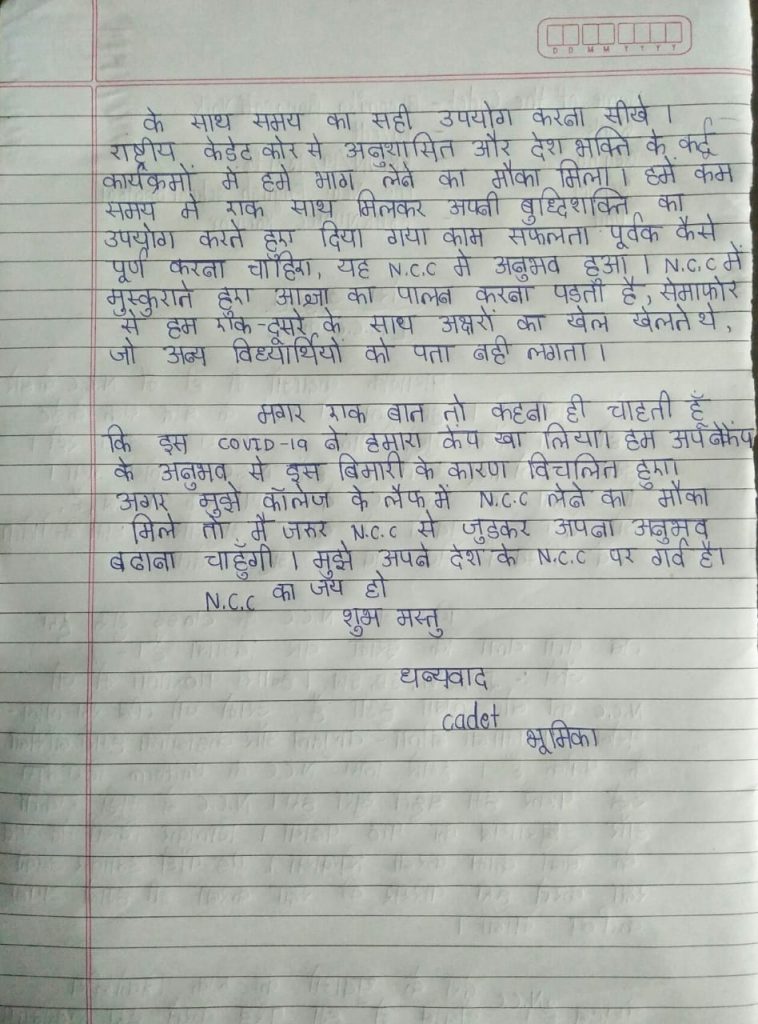 D D M M Y Y Y Y
के साथ समय का सही उपयोग करना सीखे ।
राष्ट्रीय केडेट कोर से अनुशासित और देश भक्ति के कई
कार्यक्रमों में हमे भाग लेने का मौका मिला । हमें कम
समय में एक साथ मिलकर अपनी बुध्दिशक्ति का
उपयोग करते हुए दिया गया काम सफलता पूर्वक कैसे
पूर्ण करना चाहिए, यह N.C.C मे अनुभव हुआ । N.C.C में
मुस्कुराते हुए आज्ञा का पालन करना पडता है, सेमाफोर
से हम एक-दूसरे के साथ अक्षरों का खेल खेलते थे,
जो अन्य विध्यार्थियों को पता नही लगता ।
मगर एक बात तो कहना ही चाहती हूँ
कि इस COVID-19 ने हमारा केंप खा लिया। हम अपने कैंप
के अनुभव से इस बिमारी के कारण विचलित हुए।
अगर मुझे कॉलेज के लैफ में N.C.C लेने का मौका
मिले तो मै जरुर N.C.C से जुडकर अपना अनुभव
बढाना चाहुँगी । मुझे अपने देश के N.C.C पर गर्व है।
N.C.C का जय हो
शुभ मस्तु
धन्यवाद
cadet
भूमिका